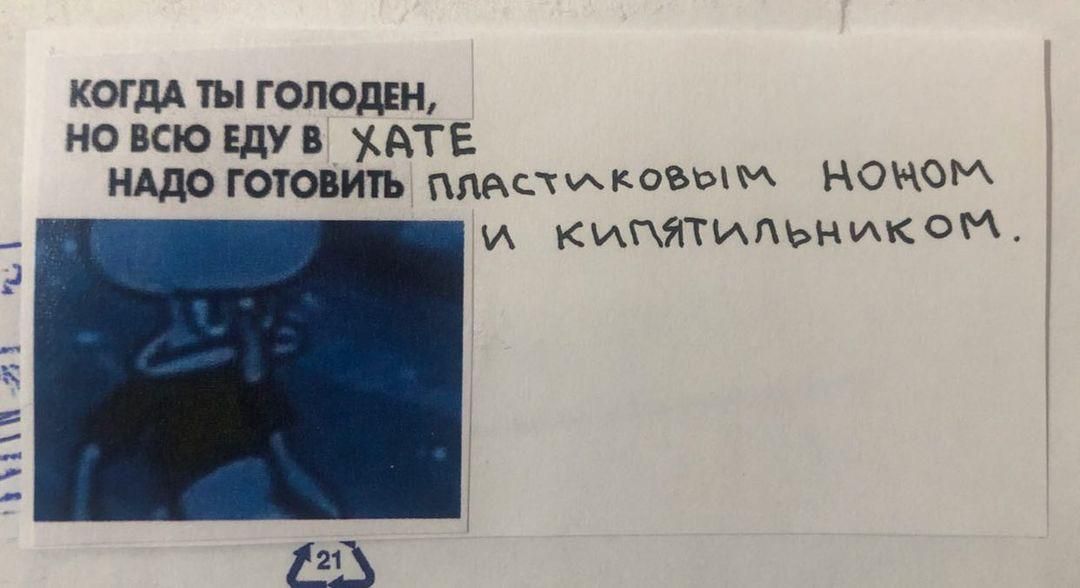 КОГДА ТЫ ГОЛОДЕН,
НО ВСЮ ЕДУ В ХАТЕ
НАДО ГОТОВИТЬ ПЛАСТИКОВЫМ НОНОМ
И КИПЯТИЛЬНИКОМ.
21